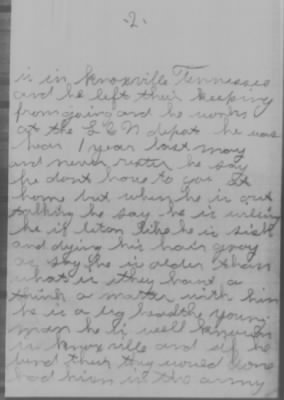 -2-
is in Knoxville Tennessee
and he left their keeping
from going and he works
at the L & N depot he was
hear 1 year last may
and never rister he say
he dont have to go. At
home but when he is out
talking he say he is willing
he is like he is sick
and dying his hair gray
or say he is older than
what is they hant a
think a matter with him
he is a big healthe young
man he is well known
in Knoxville and if he
their they would have
had him in the army